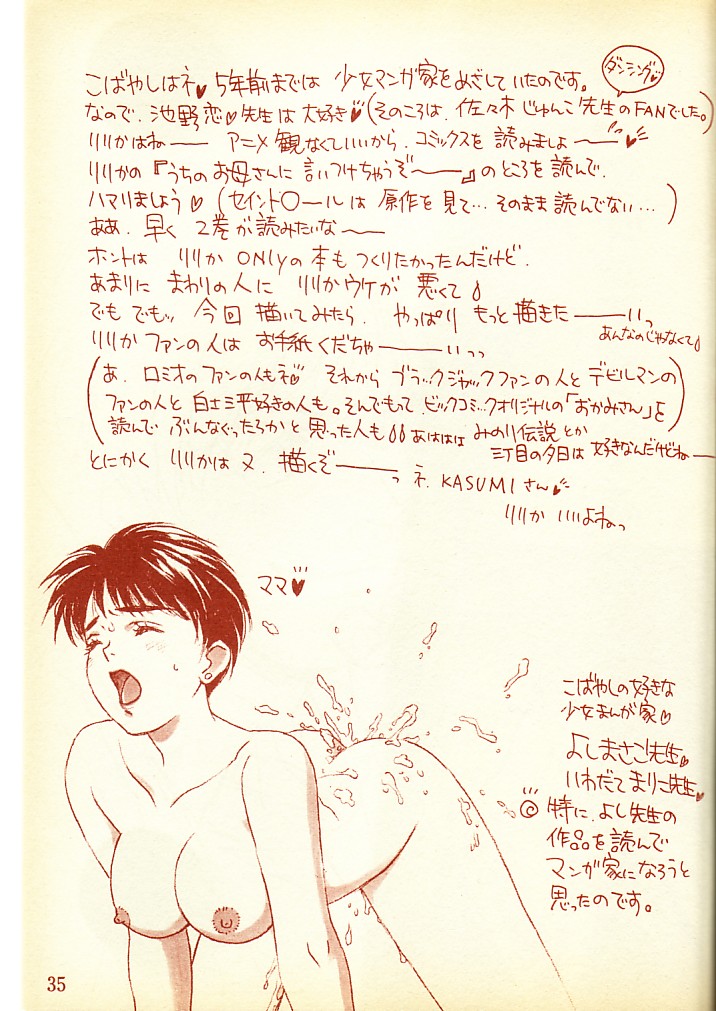 こばやしはネ♥5年前までは 少女マンガ家をめざしていたのです。
ダンシング♥
なので、池野恋♡先生は大好き♥(そのころは、佐々木じゅんこ先生のFANでした。)
リリかはねー アニメ観なくていいから、コミックスを読みましょー♥
リリかの『うちのお母さんに言いつけちゃうぞー』のところを読んで、
ハマりましょう♡(セイント〇ールは 原作を見て…そのまま読んでない…)
ああ、早く 2巻が読みたいなー
ホントは リリか ONlyの本もつくりたかったんだけど、
あまりに まわりの人に リリかウケが 悪くて
でもでもッ 今回 描いてみたら、やっぱり もっと描きたーいっ
あんなのじゃなくて
リリか ファンの人は お手紙くだちゃーいっっ
(あ、ロミオのファンの人もネ♡ それから ブラックジャックファンの人と デビルマンの
ファンの人と 白土三平好きの人も。そんでもって ビックコミックオリジナルの「おかみさん」を
読んで ぶんなぐったろかと思った人も あははは みのり伝説とか
三丁目の夕日は 好きなんだけどねー
とにかく リリかは又、描くぞーっ ネ、KASUMIさん♥
リリか いいよねっ
ママ♥
こばやしの好きな
少女まんが家♡
よしまさこ先生♥
いわだてまりこ先生♥
◎特に、よし先生の
作品を読んで
マンガ家になろうと
思ったのです。
35